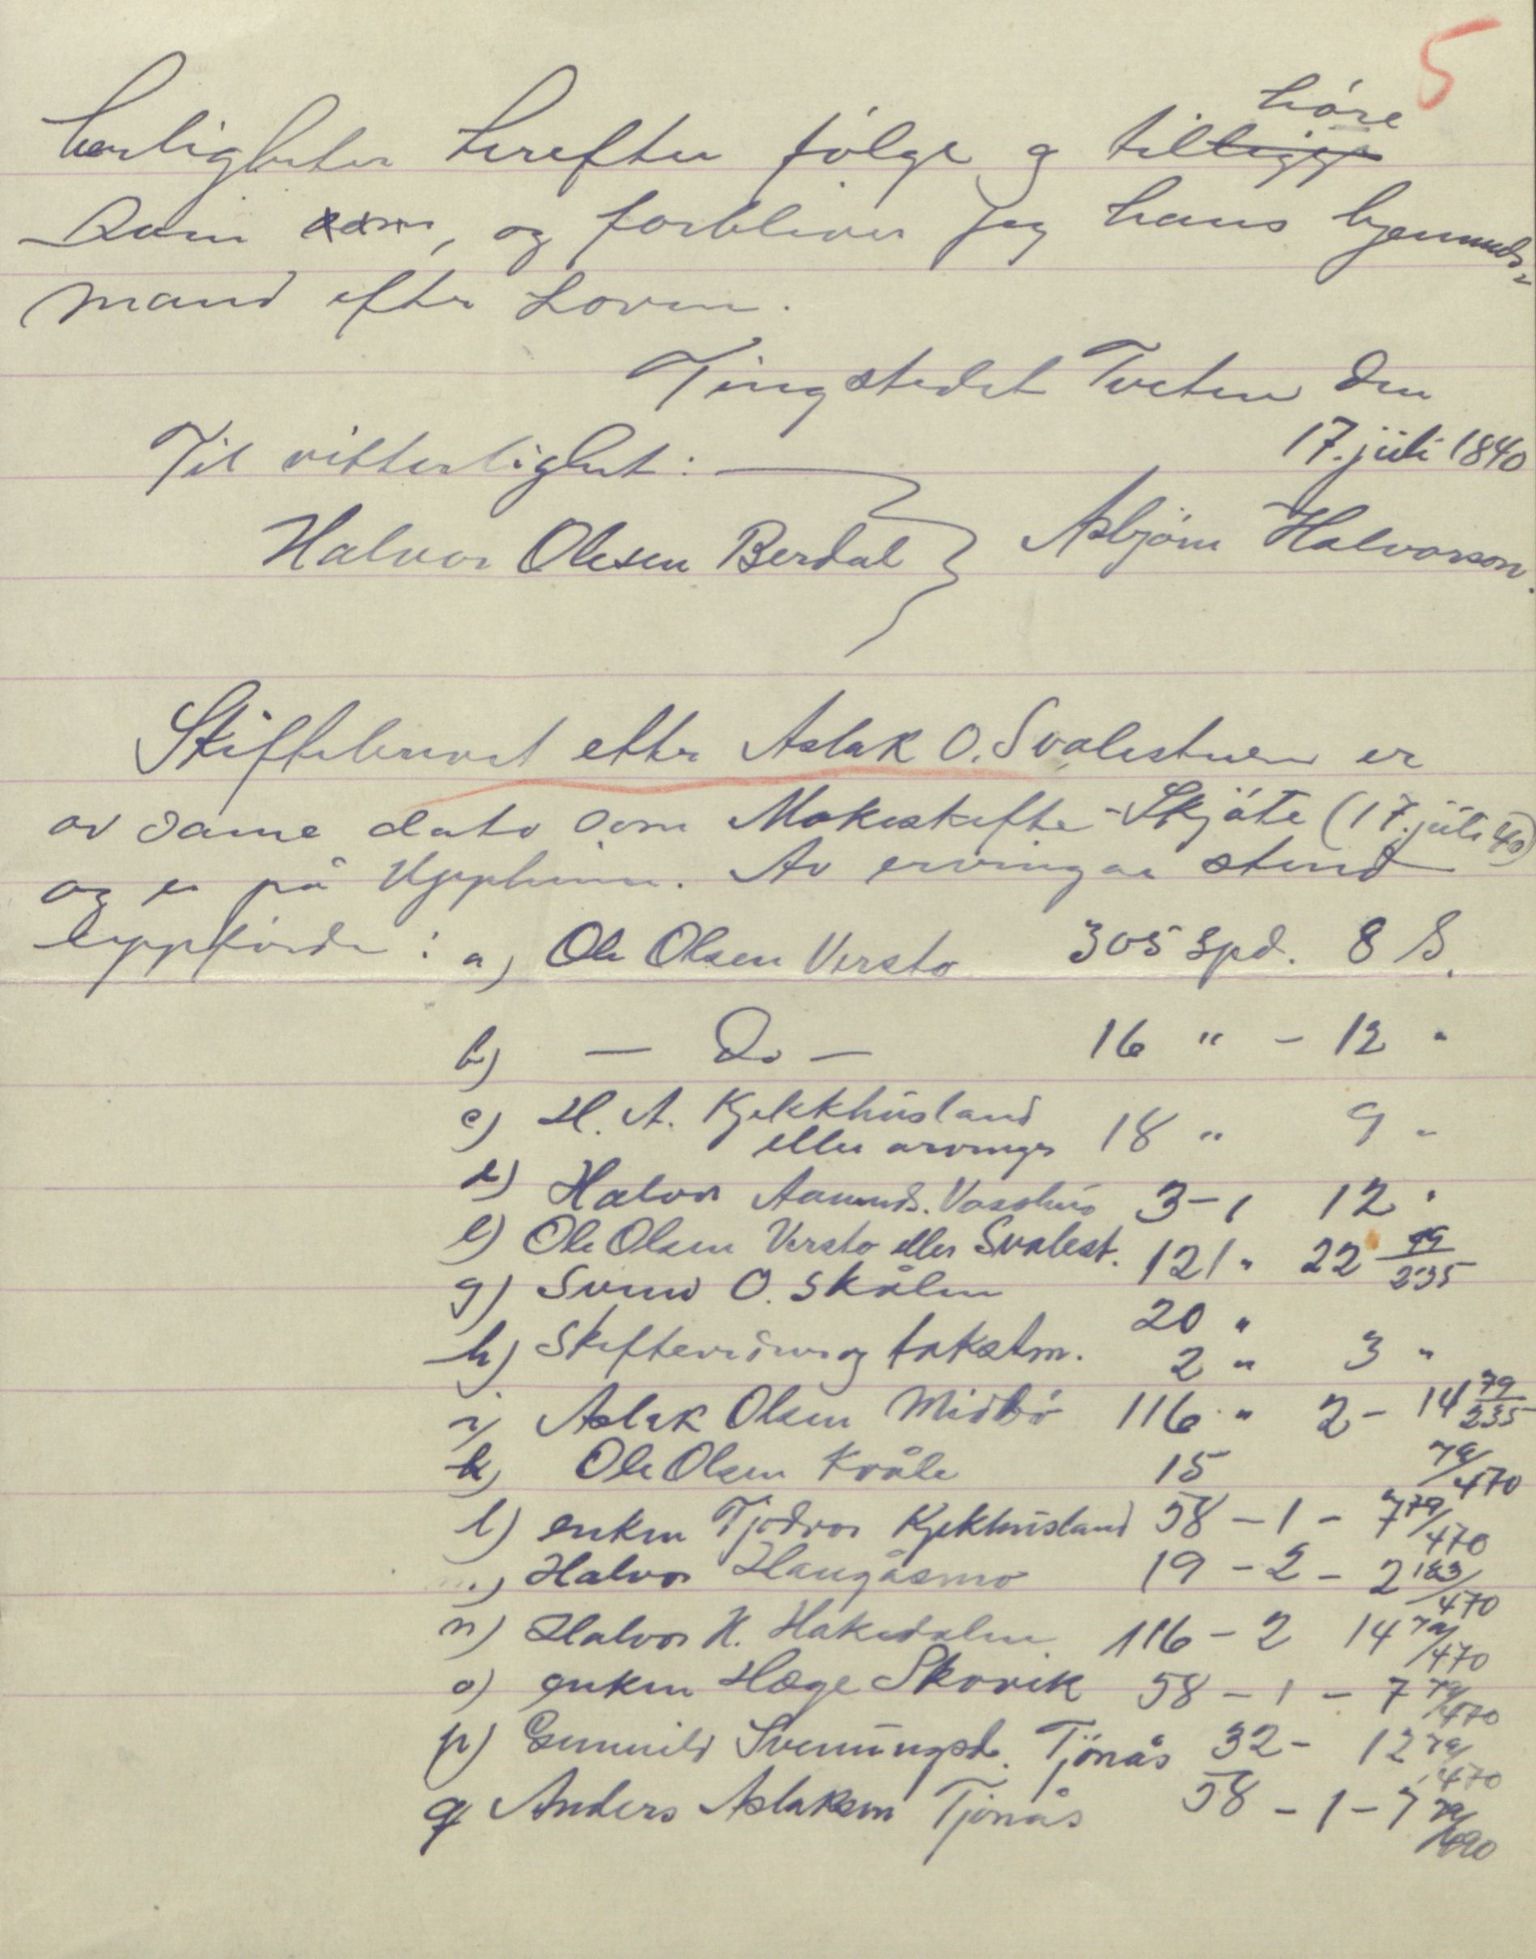 5
herligheter herefter følge og tilligge høre
Dem som, og forbliver jeg hans hjemmels-
mand efter Loven.
Tingstedet Tveten den
17. juli 1840
Til vitterlighet:
Halvor Olesen Berdal } Asbjørn Halvorson.
Skiftebrevet etter Aslak O. Svalestuen er
av same dato som Mokeskifte-Skjøte (17. juli 40)
og er på Uppheim. Av ervingar stend
uppførde: a) Ole Olsen Versto 305 Spd. 8 S.
b) — Do — 16 " - 12 "
c) H. A. Kjekkhusland
eller arvinger 18 " 9 "
d) Halvor Aamunds. Vaashus 3-1 12 "
e) Ole Olsen Versto eller Svalest. 121 " 22 99/235
g) Svend O. Skålen 20 "
h) Skifteverving og takstm. 2 " 3 "
i) Aslak Olsen Midbø 116 " 2 - 14 79/235
k) Ole Olsen Kråle 15 79/470
l) enken Tjodvor Kjekhusland 58 - 1 - 7 79/470
m) Halvor Haugåsmo 19 - 2 - 2 183/470
n) Halvor H. Hakedalen 116 - 2 14 79/470
o) enken Hæge Skovik 58 - 1 - 7 79/470
p) Gunnild Svenungsd. Tjønås 32 - 12 79/470
q Anders Aslaksen Tjønås 58 - 1 - 7 79/490